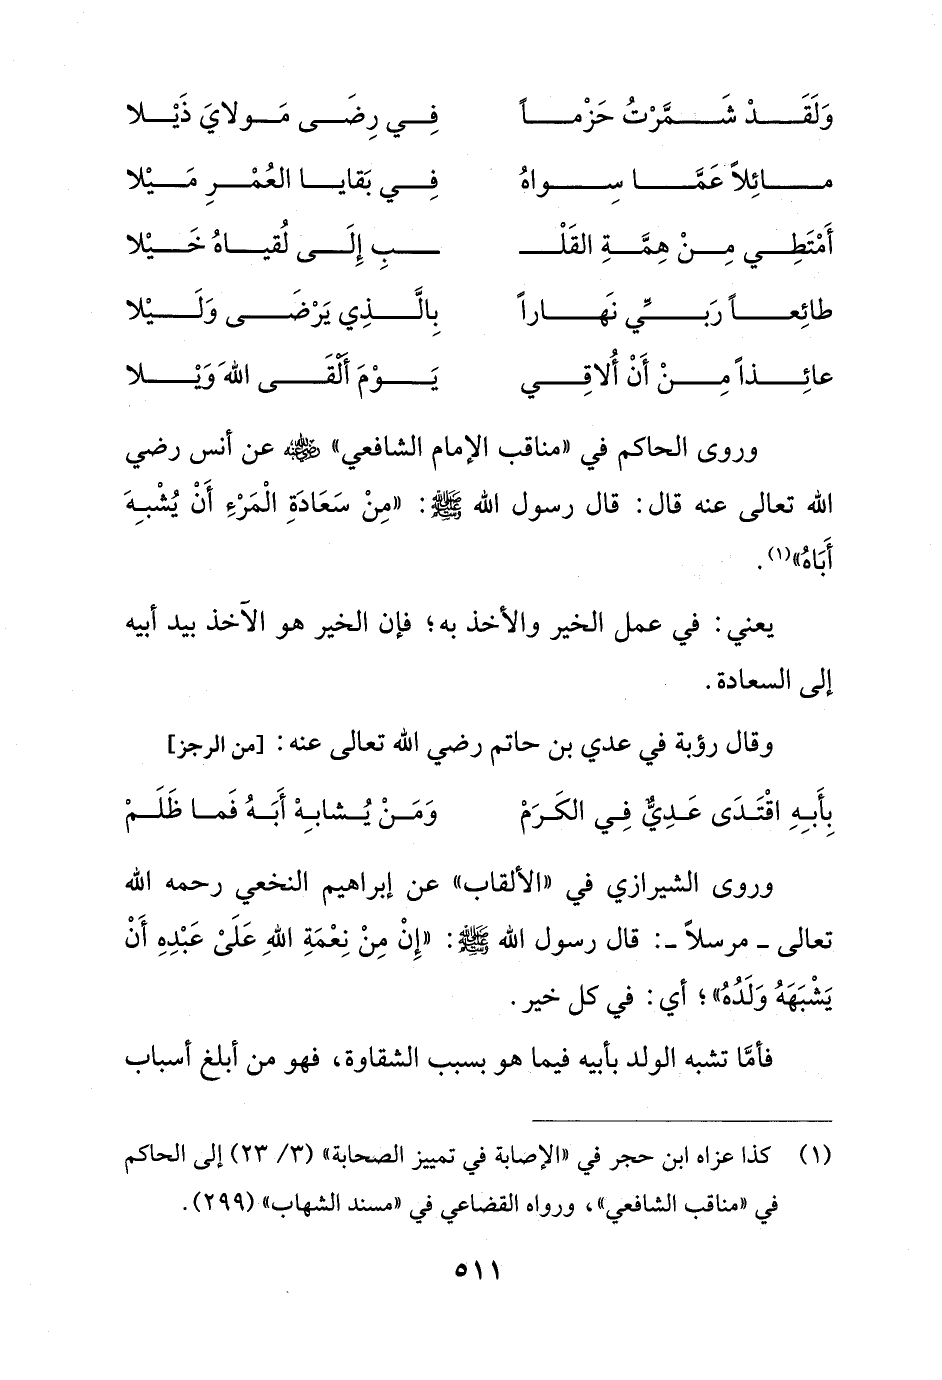 وَلَقَدْ شَمَّرْتُ حَزْماً فِي رِضَى مَولايَ ذَيْلا
مائِلاً عَمَّا سِواهُ فِي بَقايا العُمْرِ مَيْلا
أَمْتَطِي مِنْ هِمَّةِ القَلْـ ـبِ إِلَى لُقياهُ خَيْلا
طائِعاً رَبِّي نَهاراً بِالَّذِي يَرْضَى وَلَيْلا
عائِذاً مِنْ أَنْ أُلاقِي يَوْمَ أَلْقَى اللهَ وَيْلا
وروى الحاكم في «مناقب الإمام الشافعي» رضي الله عنه عن أنس رضي
الله تعالى عنه قال: قال رسول الله ﷺ: «مِنْ سَعَادَةِ الْمَرْءِ أَنْ يُشْبِهَ
أَبَاهُ»(١).
يعني: في عمل الخير والأخذ به؛ فإن الخير هو الآخذ بيد أبيه
إلى السعادة.
وقال رؤبة في عدي بن حاتم رضي الله تعالى عنه: [من الرجز]
بِأَبِهِ اقْتَدَى عَدِيٌّ فِي الكَرَمْ وَمَنْ يُشابِهْ أَبَهُ فَما ظَلَمْ
وروى الشيرازي في «الألقاب» عن إبراهيم النخعي رحمه الله
تعالى ـ مرسلاً ـ: قال رسول الله ﷺ: «إِنْ مِنْ نِعْمَةِ اللهِ عَلَىْ عَبْدِهِ أَنْ
يَشْبَهَهُ وَلَدُهُ»؛ أي: في كل خير.
فأمَّا تشبه الولد بأبيه فيما هو بسبب الشقاوة، فهو من أبلغ أسباب
(١) كذا عزاه ابن حجر في «الإصابة في تمييز الصحابة» (٣/ ٢٣) إلى الحاكم
في «مناقب الشافعي»، ورواه القضاعي في «مسند الشهاب» (٢٩٩).
٥١١